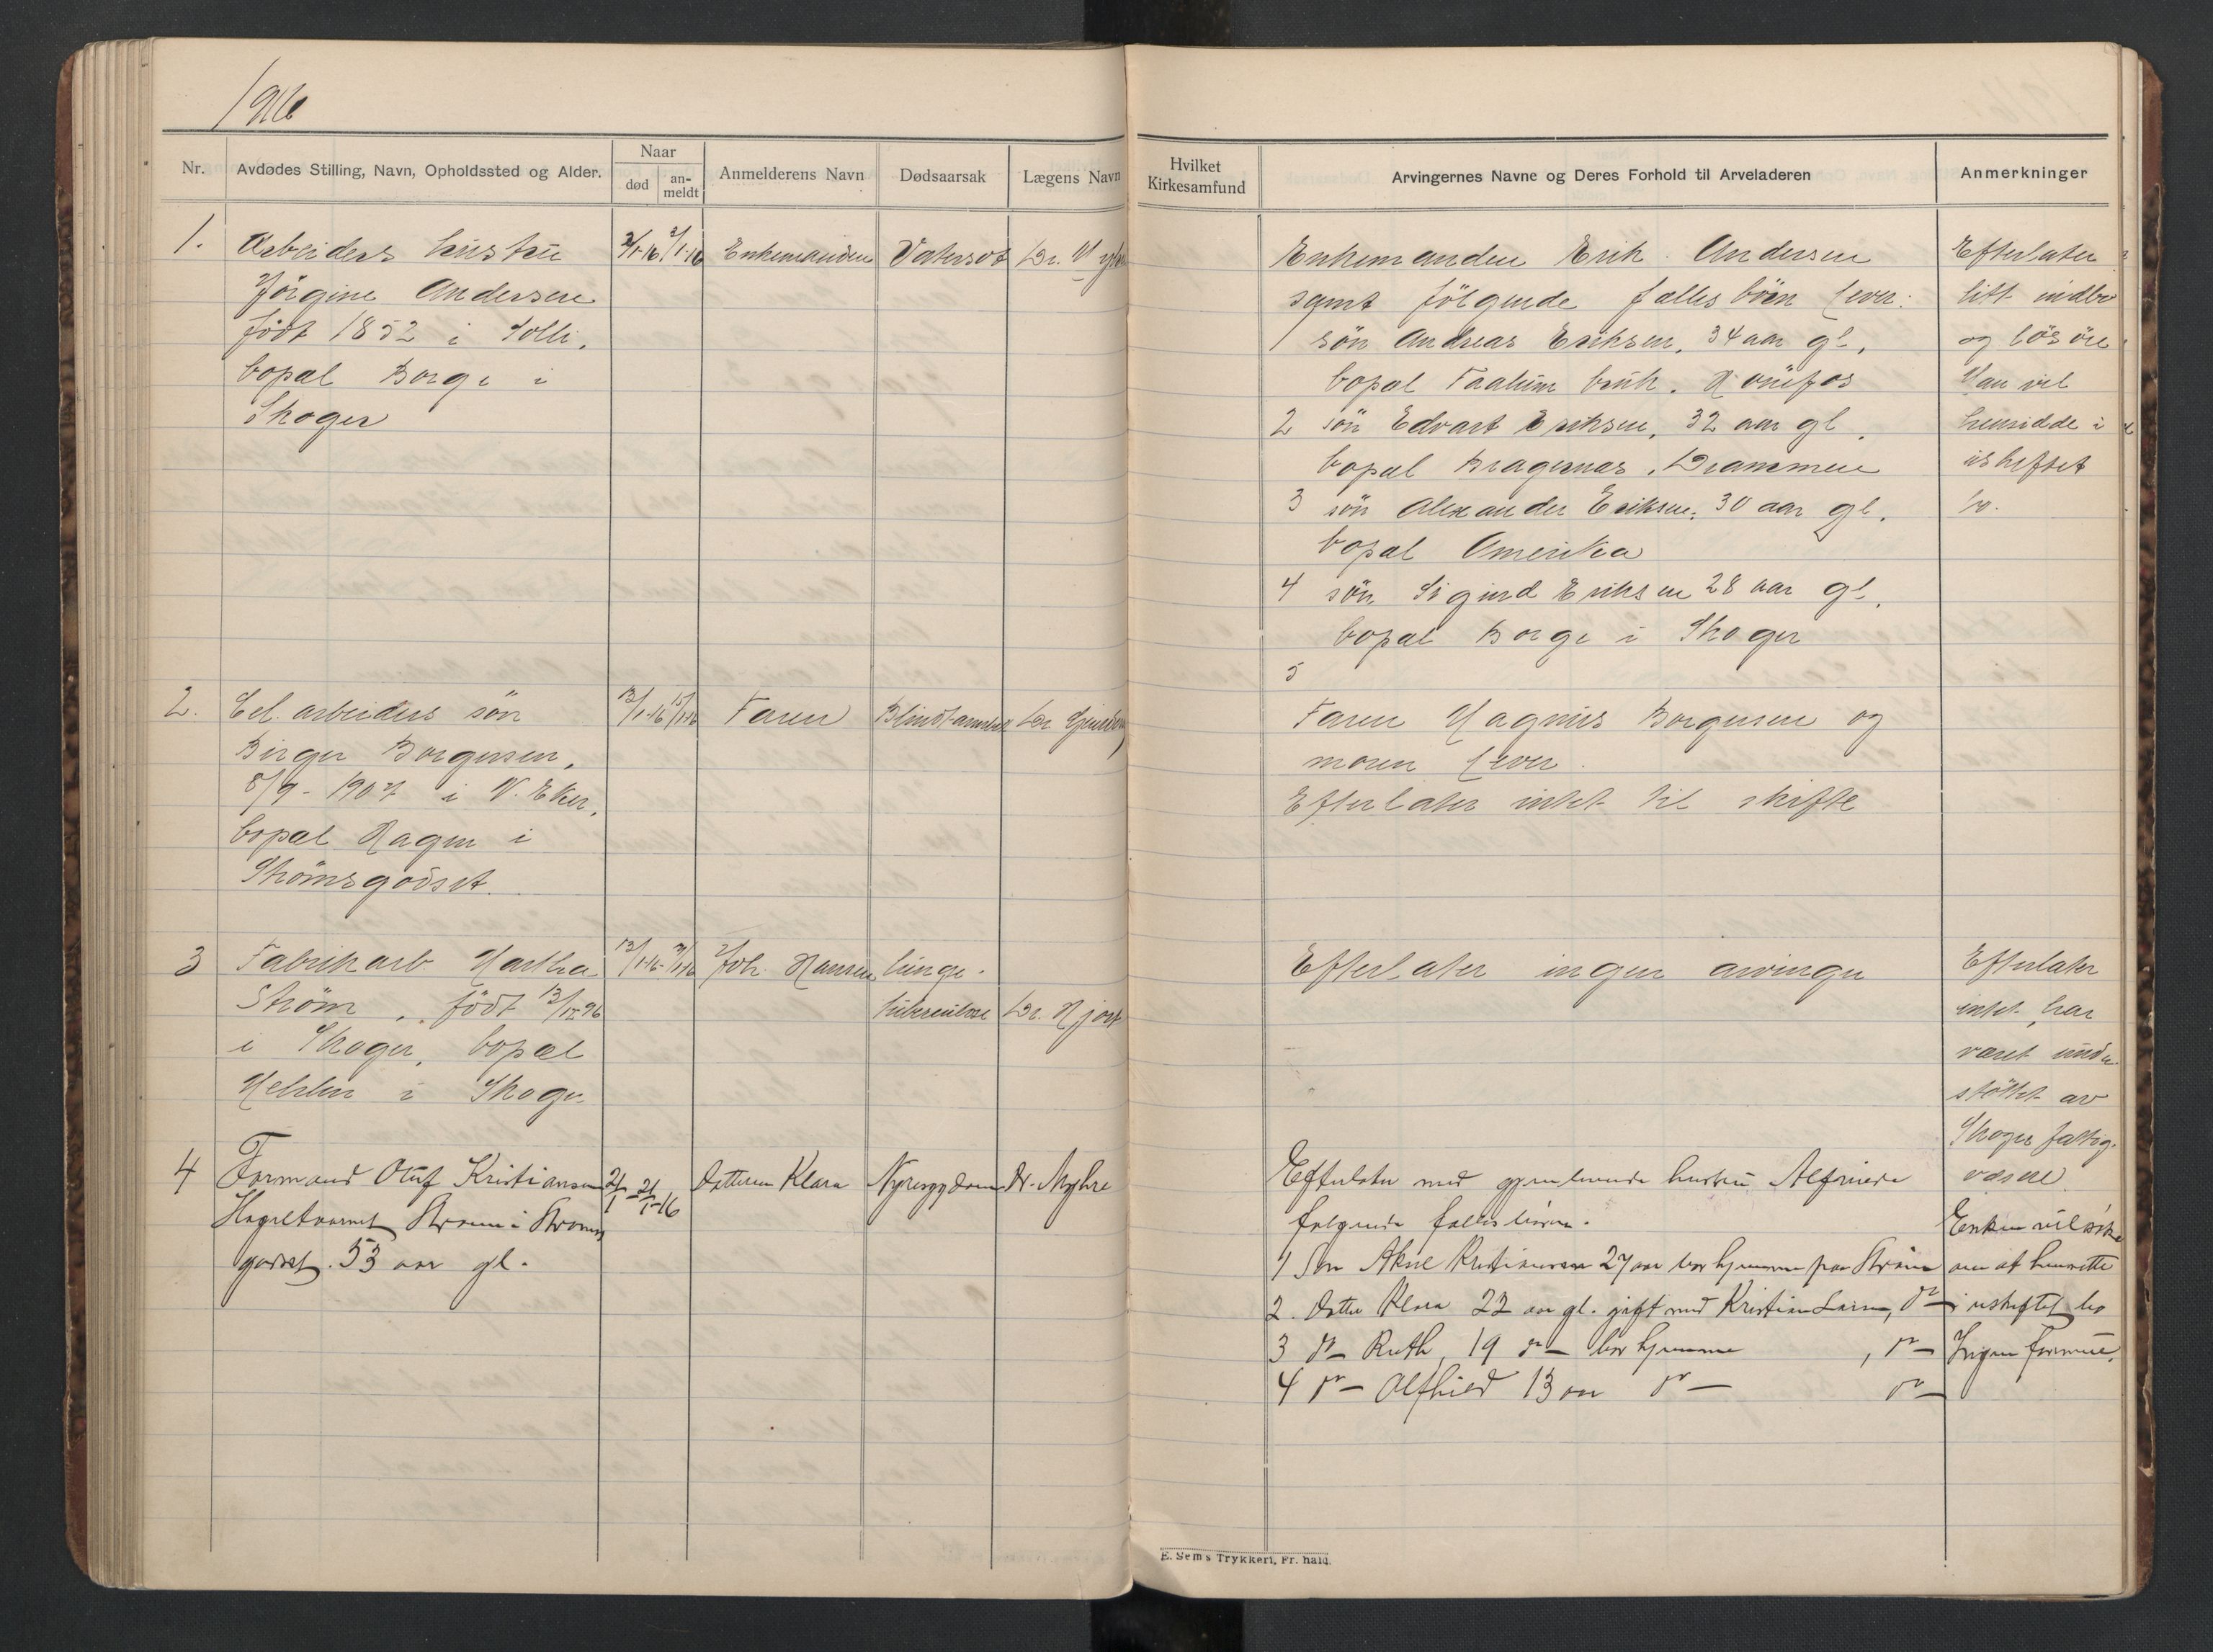 1916
Nr.
Avdødes Stilling, Navn, Opholdssted og Alder.
Naar
død
an-
meldt
Anmelderens Navn
Dødsaarsak
Lægens Navn
Hvilket
Kirkesamfund
Arvingernes Navne og Deres Forhold til Arveladeren
Anmerkninger
1. Arbeiders hustru
Jörgine Andersen
født 1852 i Solli,
bopæl Borge i
Skoger
2/1-16 2/1-16 Enkemanden Vatersot Dr.
Enkemanden Erik Andersen
samt fölgende fælles börn lever:
1 sön Andreas Eriksen, 34 aar gl,
bopæl Faalum bruk. Hönefos
2 sön Edvart Eriksen, 32 aar gl,
bopæl Bragernæs, Drammen
3 sön Alexander Eriksen, 30 aar gl.
bopæl Amerika
4 sön Sigurd Eriksen 28 aar gl,
bopæl Borge i Skoger
5
Efterlater
litt indbo
og lösöre
Han vil
hensidde i
uskiftet
bo.
2. Cel. arbeiders sön
Birger Borgersen,
8/9-1907 i N. Eker,
bopæl Hagen i
Strömsgodset.
13/1-16 15/1-16 Faren Blindtarmbet. Dr.
Faren Magnus Borgersen og
moren lever.
Efterlater intet til skifte
3 Fabrikarb. Martha
Ström, født 13/12-96
i Skoger, bopæl
i Skoger
13/1-16 21/1-16 Joh. Hansen lunge-
tuberculose Dr. Hjort
Efterlater ingen arvinger
Efterlater
intet, har
været under-
støttet av
Skoger fattig-
væsen
4 Formand Oluf Kristiansen
Hageltaarnet Strøm i Strøms
godset. 53 aar gl.
21/1 21/1-16 Datteren Klara Nyresygdom Dr. Myhre
Efterlater med gjenlevende hustru Alfrida
følgende fælles börn.
1 Søn Kristiansen 27 aar bor hjemme paa Strøm
2. Datter Klara 22 aar gl. gift med Kristian Larsen, do-
3 do- Ruth, 19 do- bor hjemme, do-
4 do- Alfhild 13 aar do- do-
Enken vil søke
om at hensitte
i uskiftet bo
Ingen formue.
E. Sem's Trykkeri, Fr. hald.